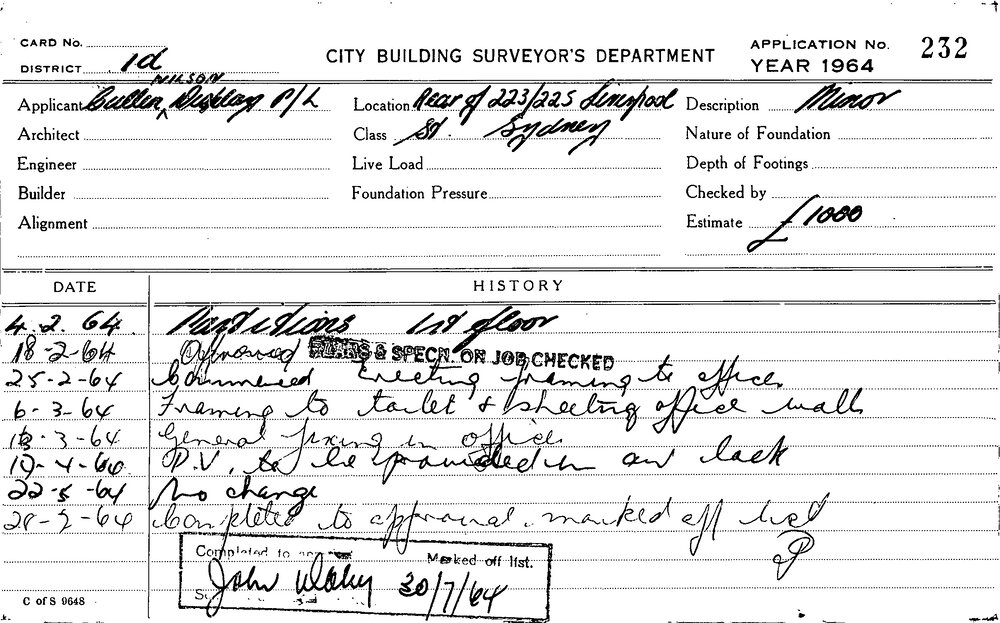 CARD No.
DISTRICT 1d
CITY BUILDING SURVEYOR'S DEPARTMENT
APPLICATION No. 232
YEAR 1964
WILSON
Applicant Cullen Displays P/L
Location Rear of 223/225 Liverpool
Description Minor
Architect
Class St. Sydney
Nature of Foundation
Engineer
Live Load
Depth of Footings
Builder
Foundation Pressure
Checked by
Alignment
Estimate £1000
DATE HISTORY
4.2.64. Partitions 1st floor
18-2-64 Approved PLANS & SPECN. ON JOB CHECKED
25-2-64 Commenced Erecting framing to offices
6-3-64 Framing to toilet & sheeting office walls
3-64 General fixing in offices
4-64 P.V. to be provided in air lock
22-5-64 No change
64 Completed to approval. marked off list
Completed to Marked off list.
John 30/7/64
C of S 9648